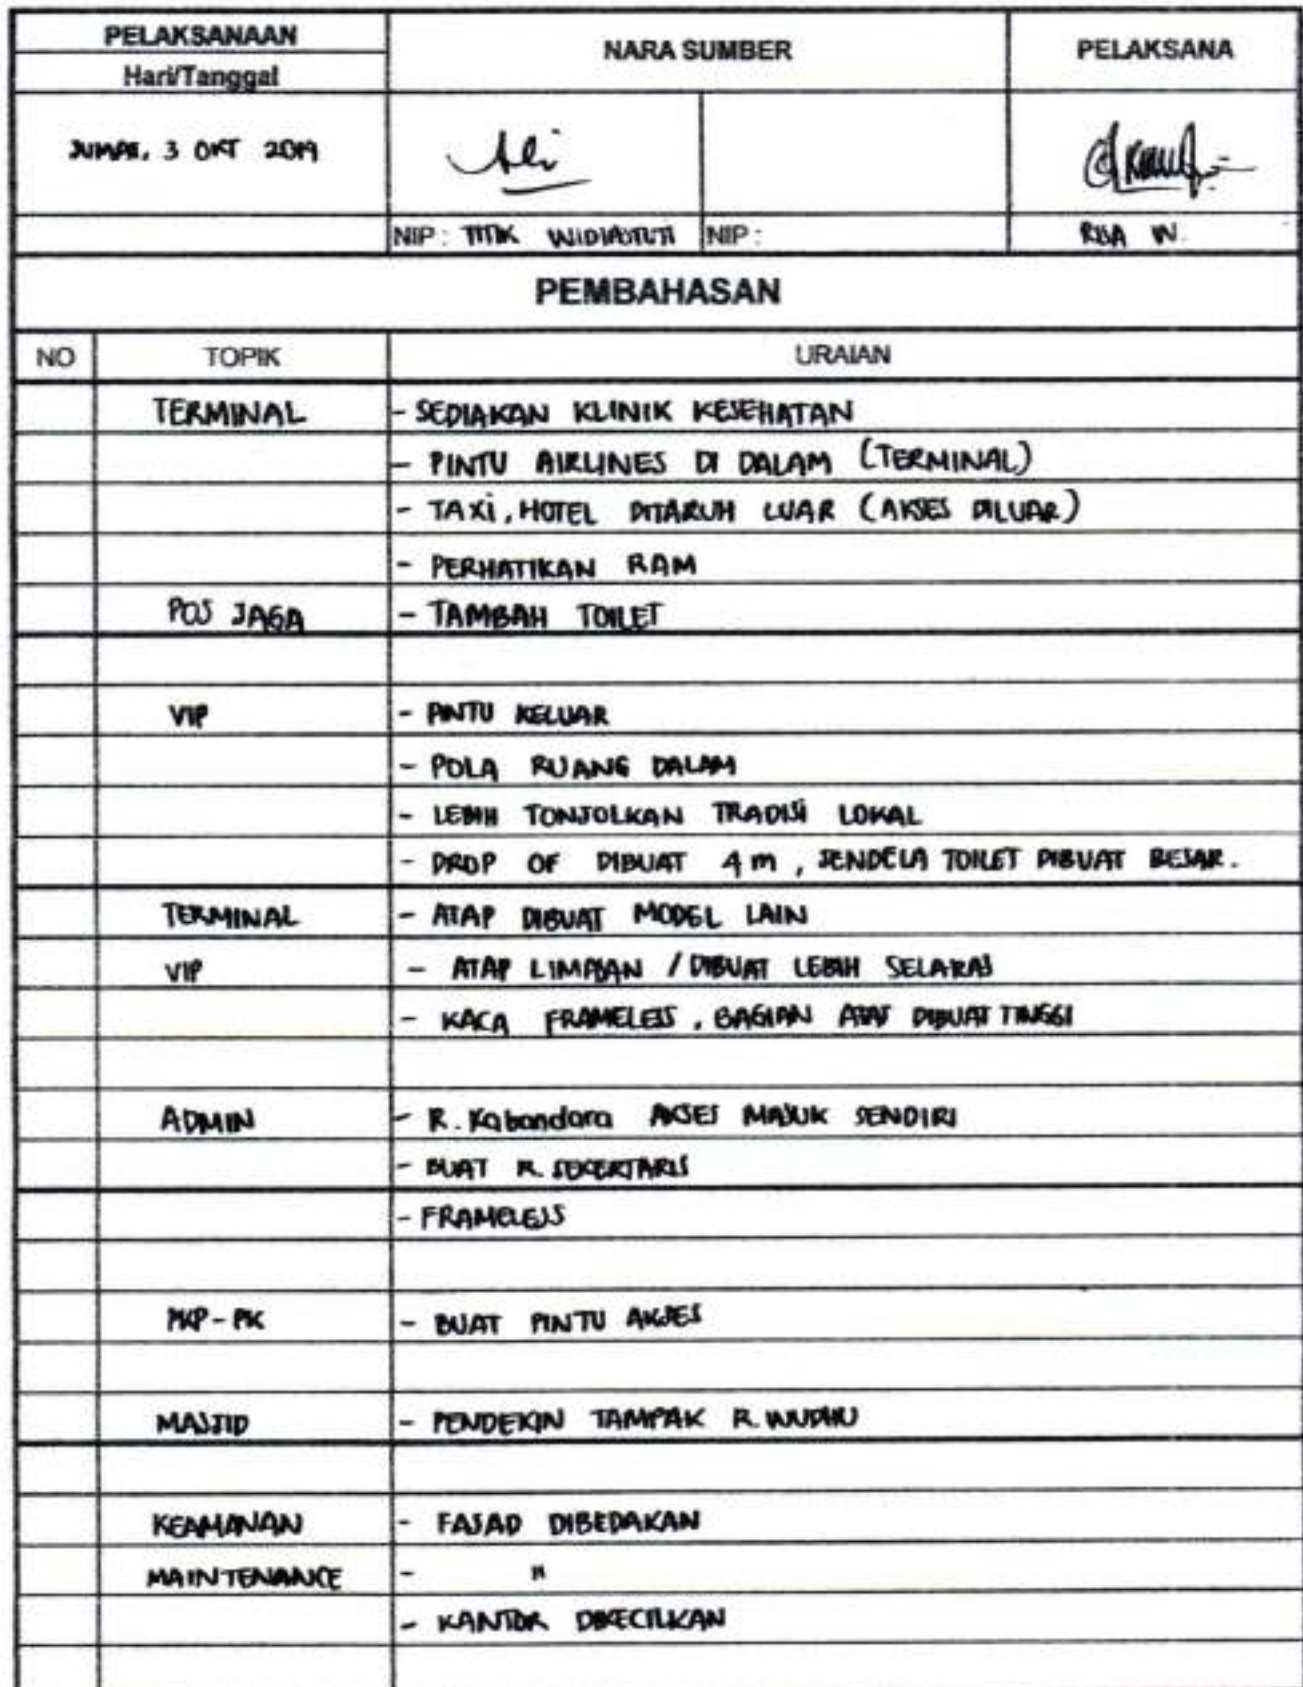 PELAKSANAAN
Hari/Tanggal
NARA SUMBER
PELAKSANA
JUMAT, 3 OKT 2019
NIP : TITIK WIDIASTUTI
NIP :
RISA W.
PEMBAHASAN
NO TOPIK URAIAN
TERMINAL - SEDIAKAN KLINIK KESEHATAN
- PINTU AIRLINES DI DALAM (TERMINAL)
- TAXI, HOTEL DITARUH LUAR (AKSES DILUAR)
- PERHATIKAN RAM
POS JAGA - TAMBAH TOILET
VIP - PINTU KELUAR
- POLA RUANG DALAM
- LEBIH TONJOLKAN TRADISI LOKAL
- DROP OF DIBUAT 4 m, JENDELA TOILET DIBUAT BESAR.
TERMINAL - ATAP DIBUAT MODEL LAIN
VIP - ATAP LIMASAN / DIBUAT LEBIH SELARAS
- KACA FRAMELESS, BAGIAN ATAS DIBUAT TINGGI
ADMIN - R. Kabandara AKSES MASUK SENDIRI
- BUAT R. SEKERTARIS
- FRAMELESS
PKP-PK - BUAT PINTU AKSES
MASJID - PENDEKIN TAMPAK R. WUDHU
KEAMANAN - FASAD DIBEDAKAN
MAINTENANCE - "
- KANTOR DIKECILKAN